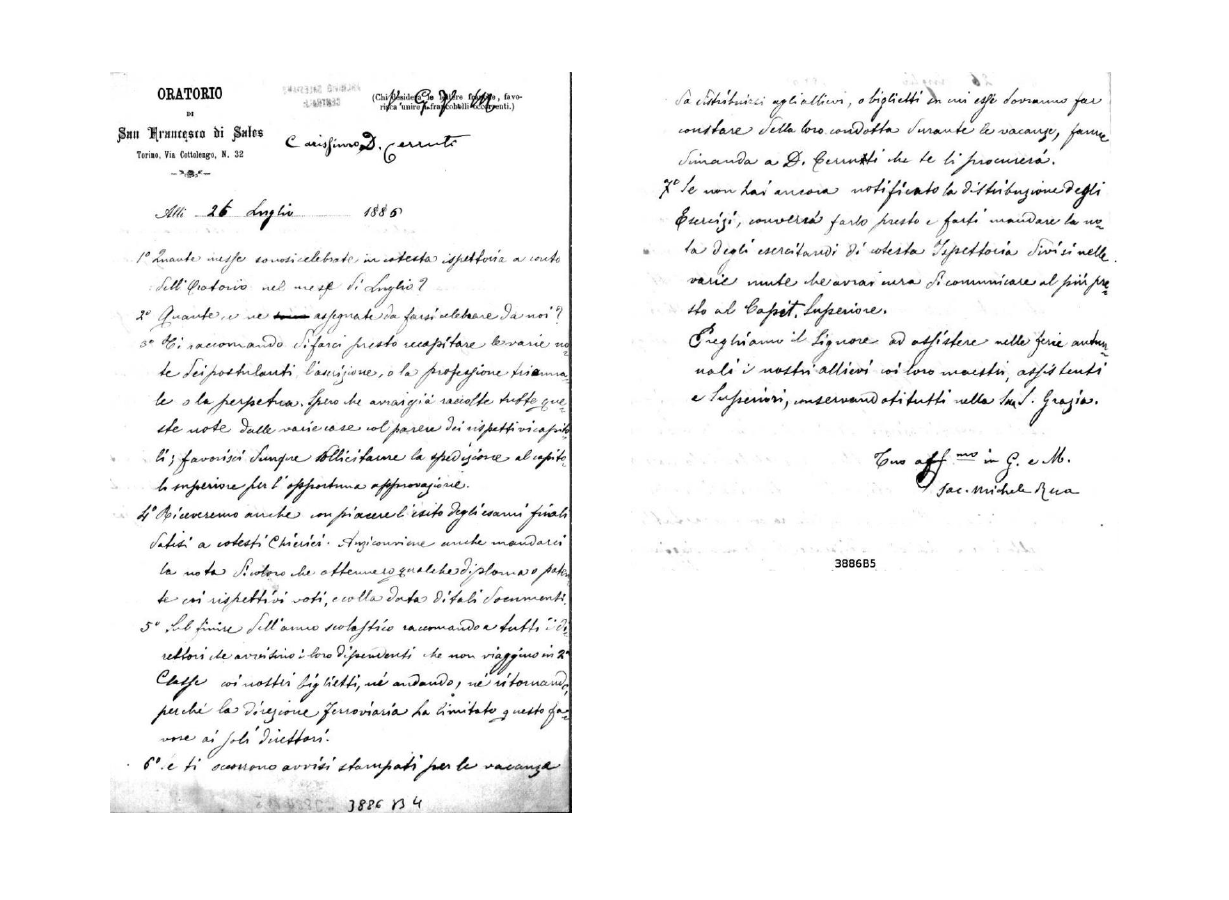 ORATORIO
DI
San Francesco di Sales
Torino, Via Cottolengo, N. 32
(Chi desidera le lettere francate, favo-
risca unire i francobolli occorrenti.)
V. G. M.
Carissimo D. Cerruti
Alli 26 Luglio 1886
1º Quante messe sonosi celebrate in cotesta ispettoria a conto
dell'Oratorio nel mese di Luglio?
2º Quante ce ne assegnate da farsi celebrare da noi?
3º Ti raccomando di farci presto recapitare le varie no-
te dei postulanti l'ascrizione, o la professione trienna-
le o la perpetua. Spero che avrai già raccolte tutte que-
ste note dalle varie case col parere dei rispettivi capito-
li; favorisci dunque sollicitarne la spedizione al capito-
lo superiore per l'opportuna approvazione.
4º Riceveremo anche con piacere l'esito degli esami finali
datisi a cotesti Chierici. Anzi conviene anche mandarci
la nota di coloro che ottennero qualche diploma o paten-
te coi rispettivi voti, e colla data di tali documenti.
5º Sul finire dell'anno scolastico raccomando a tutti i di-
rettori che avvisino i loro dipendenti che non viaggino in 2ª
Classe coi nostri biglietti, né andando, né ritornando,
perché la direzione ferroviaria ha limitato questo fa-
vore ai soli direttori.
6º Se ti occorrono avvisi stampati per le vacanze
3886 B 4
da distribuirsi agli allievi, o biglietti in cui essi dovranno far
constare della loro condotta durante le vacanze, fanne
dimanda a D. Cerruti che te li procurerà.
7º Se non hai ancora notificato la distribuzione degli
Esercizi, converrà farlo presto e farti mandare la no-
ta degli esercitandi di cotesta Ispettoria divisi nelle
varie mute che avrai cura di comunicare al più pre-
sto al Capit. Superiore.
Preghiamo il Signore ad assistere nelle ferie autun-
nali i nostri allievi coi loro maestri, assistenti
e Superiori, conservandoti tutti nella Sua S. Grazia.
Tuo aff.mo in G. e M.
Sac. Michele Rua
3886B5